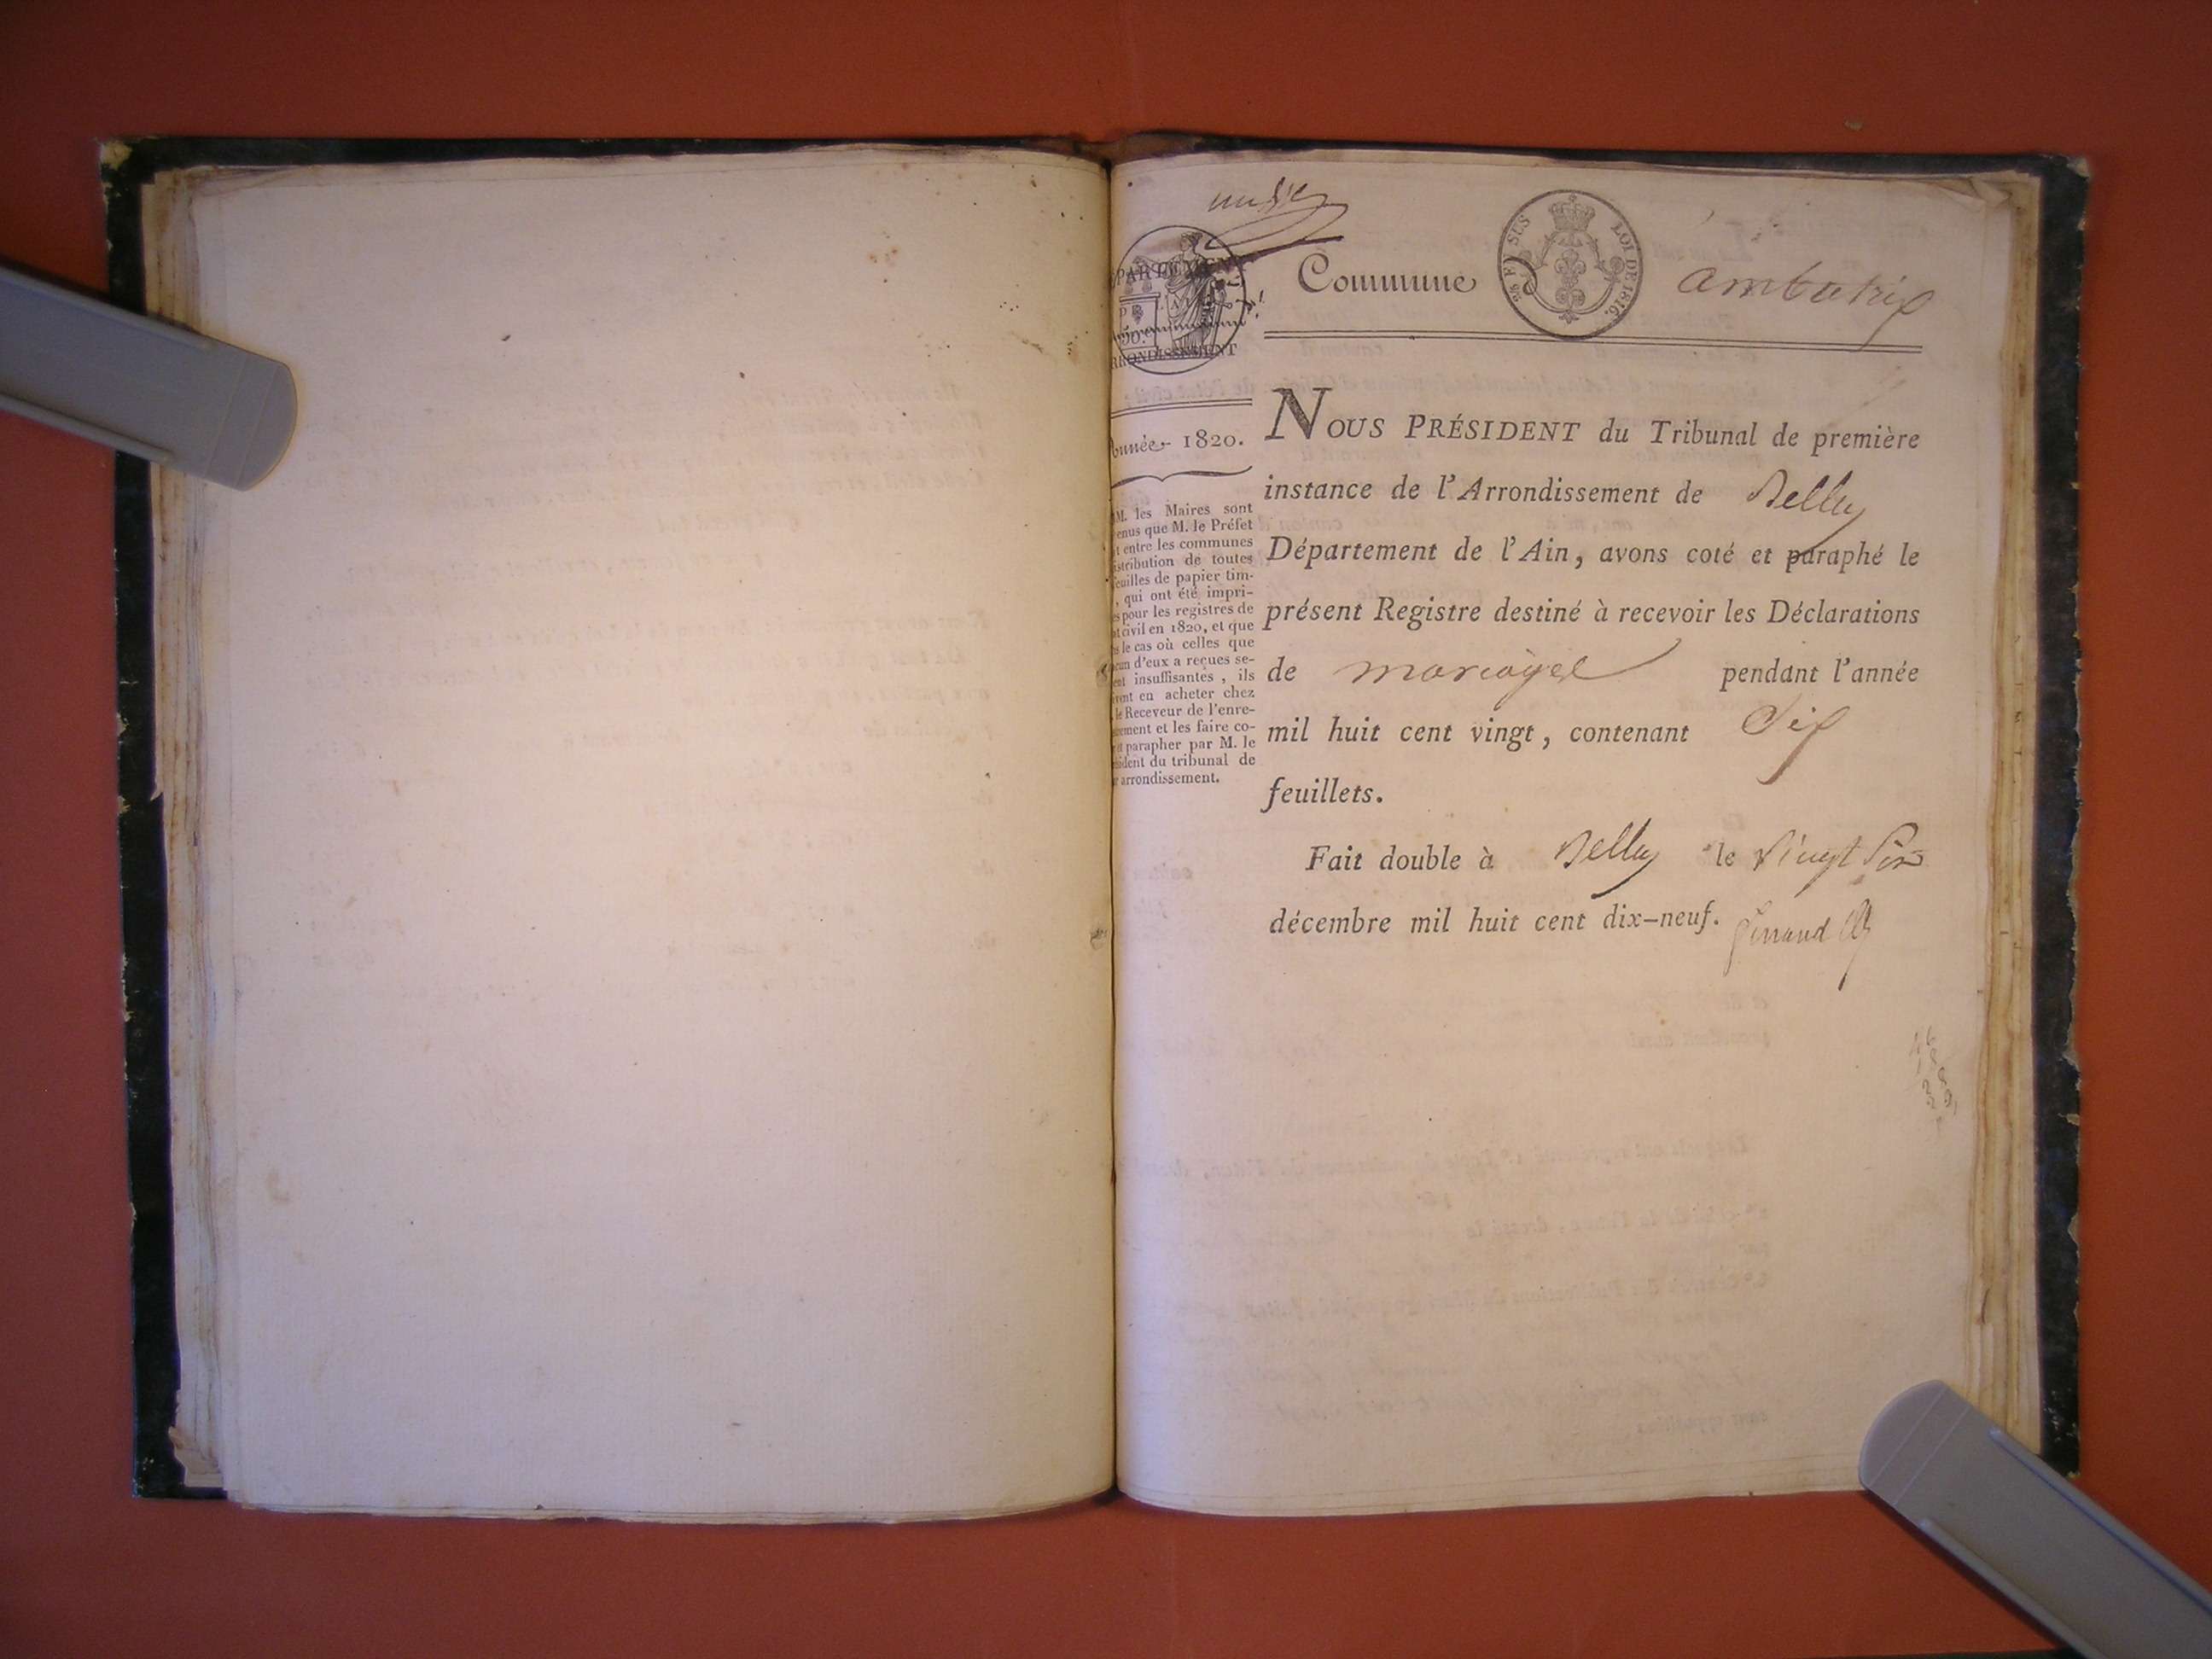 Commune
25 EN SUS
LOI DE 1816.
ambutrix
DÉPARTEMENT
L'AIN
ARRONDISSEMENT
Année 1820.
MM. les Maires sont
que M. le Préfet
entre les communes
distribution de toutes
feuilles de papier tim-
qui ont été impri-
pour les registres de
civil en 1820, et que
le cas où celles que
d'eux a reçues se-
insuffisantes, ils
en acheter chez
le Receveur de l'enre-
et les faire co-
parapher par M. le
du tribunal de
arrondissement.
NOUS PRÉSIDENT du Tribunal de première
instance de l'Arrondissement de Belley
Département de l'Ain, avons coté et paraphé le
présent Registre destiné à recevoir les Déclarations
de mariages pendant l'année
mil huit cent vingt, contenant Six
feuillets.
Fait double à Belley le Vingt Six
décembre mil huit cent dix-neuf.